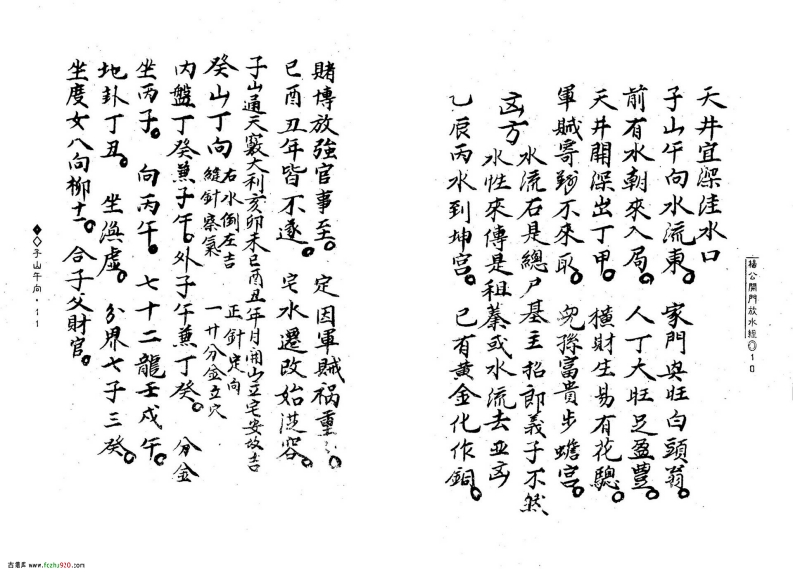 天井宜深洼水口
子山午向水流東。家門興旺白頭翁。
前有水朝來入局。人丁大旺足盈豐。
天井開深出丁甲。橫財生易有花驄。
軍賊寄錢不來取。兒孫富貴步蟾宮。
水流右是總戶基主招郎義子不然
凶方水性來傳是祖墓或水流去亚凶
乙辰丙水到坤宮。已有黃金化作銅。
楊公開門放水經 10
賭博放強官事至。定因軍賊禍重々。
巳酉丑年皆不遂。宅水遷改始從容。
子山通天竅大利亥卯未巳酉丑年月開山立宅安坟吉
癸山丁向 右水倒左吉 正針定向
縫針察氣 一廿分金立穴
內盤丁癸兼子午。外子午兼丁癸。分金
坐丙子。向丙午。七十二龍壬戌午。
地卦丁丑。坐渙虛。分界七子三癸。
坐度女八向柳十。合子父財官。
子山午向·11
古籍库 www.fczhu920.com